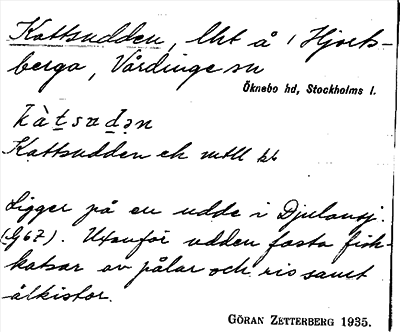 Kattsudden, lht å 1 Hjorts-
berga, Vårdinge sn
Öknebo hd, Stockholms l.
Kattsudden ek mtll
Ligger på en udde i Djulansj.
(G67). Utanför udden fasta fisk-
katsar av pålar och ris samt
ålkistor.
GÖRAN ZETTERBERG 1935.